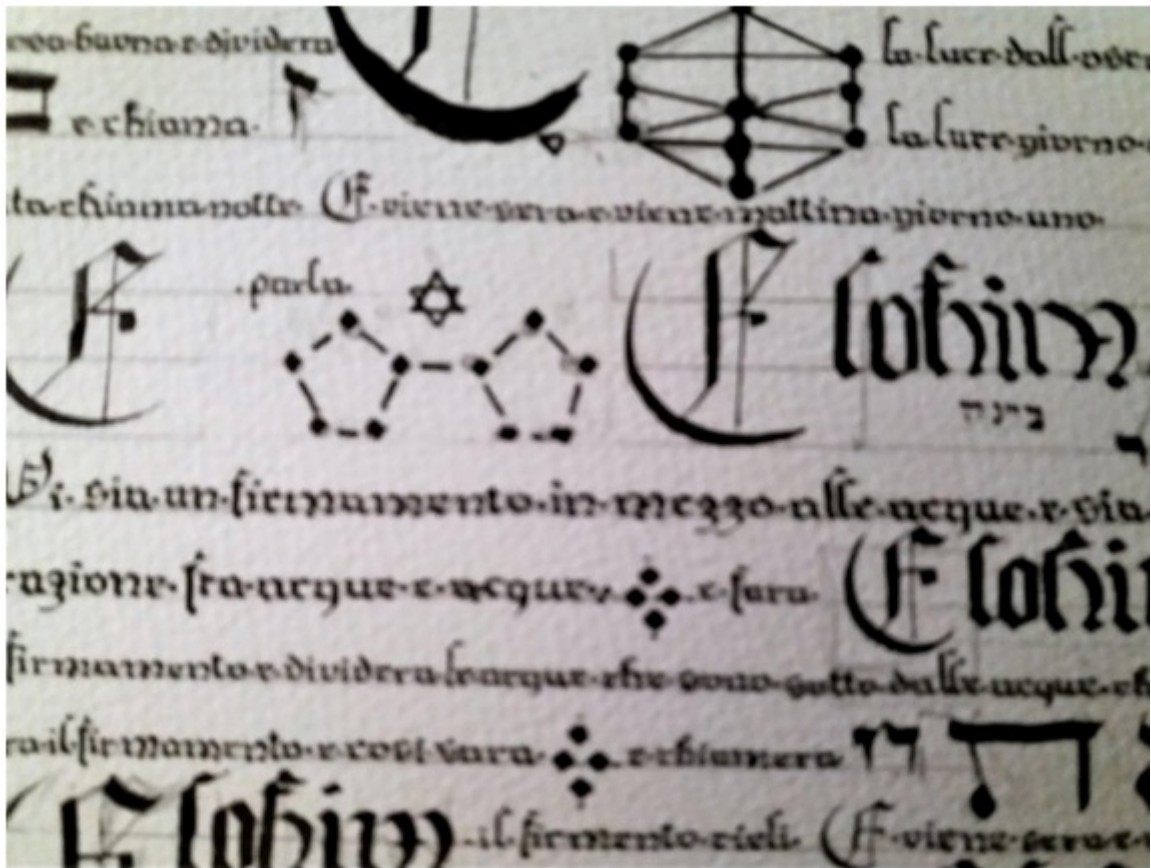 buona·e·dividera la·luce·dall·
e·chiama· la·luce·giorno·
chiama·notte· E·viene·sera·e·viene·mattina·giorno·uno·
E ·parla· Elohim
בינה
Vi·sia·un·firmamento·in·mezzo·alle·acque·e·sia·
fra·acque·e·acque· e·fara· Elohi
firmamento·e·dividera·le·acque·che·sono·sotto·dalle·acque·
il·firmamento·e·cosi·sara· e·chiamera
Elohim ·il·firmento·cieli· E·viene·sera·e·